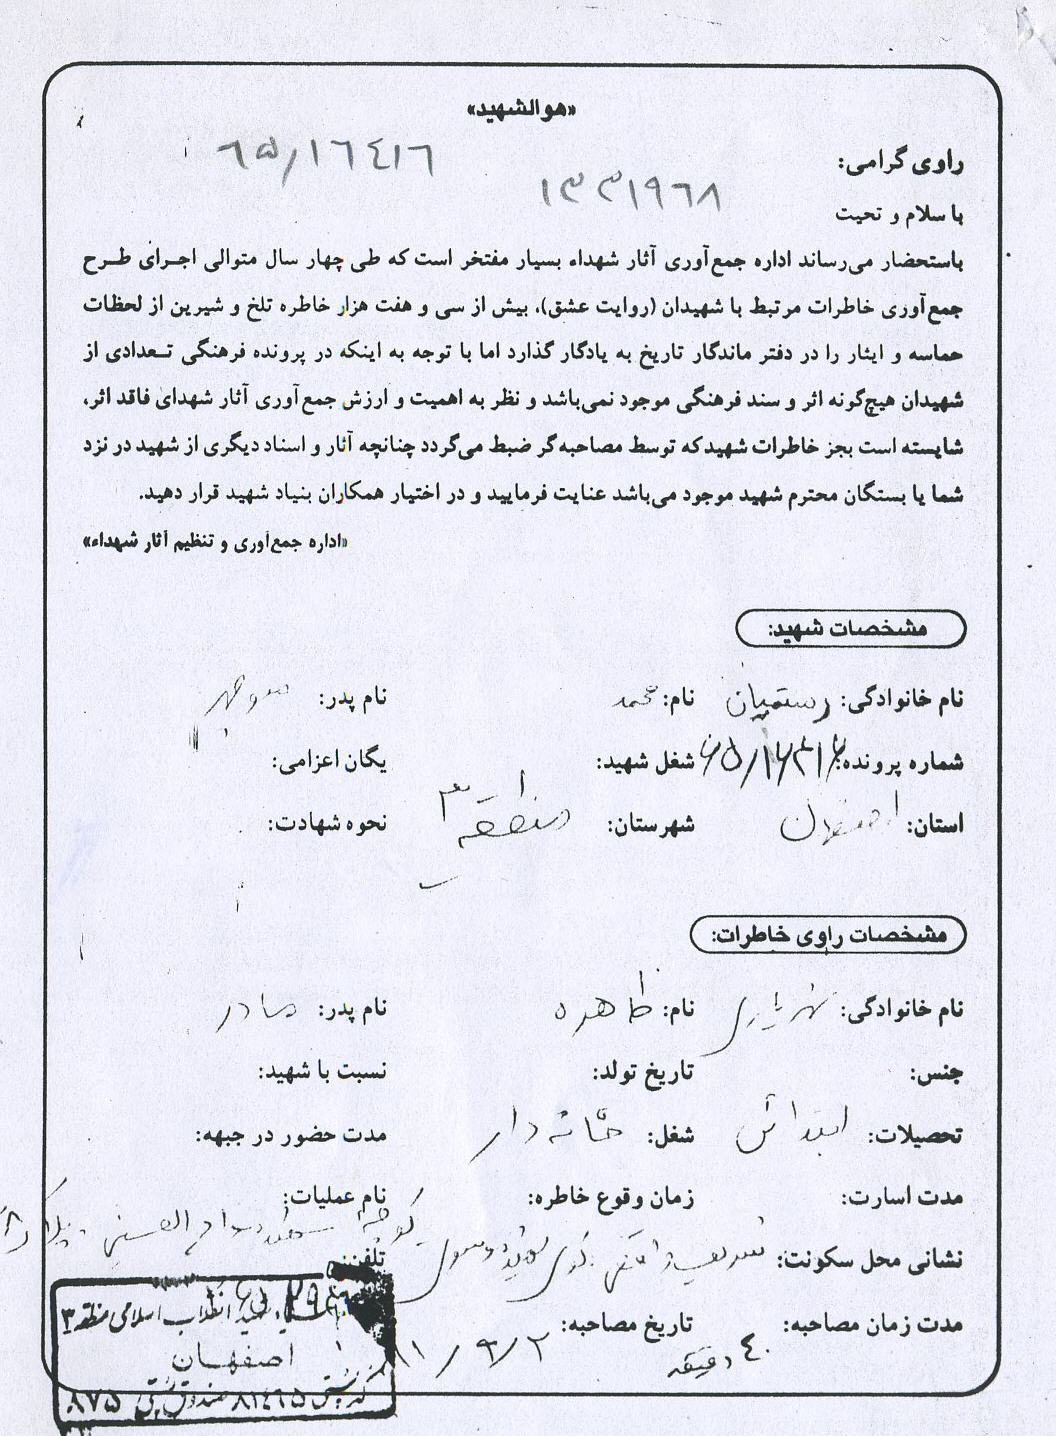 «هوالشهید»
راوی گرامی:
٦٥/١٦٤١٦
١٣٣١٩٦٨
با سلام و تحیت
باستحضار می‌رساند اداره جمع‌آوری آثار شهداء بسیار مفتخر است که طی چهار سال متوالی اجرای طرح
جمع‌آوری خاطرات مرتبط با شهیدان (روایت عشق)، بیش از سی و هفت هزار خاطره تلخ و شیرین از لحظات
حماسه و ایثار را در دفتر ماندگار تاریخ به یادگار گذارد اما با توجه به اینکه در پرونده فرهنگی تعدادی از
شهیدان هیچ‌گونه اثر و سند فرهنگی موجود نمی‌باشد و نظر به اهمیت و ارزش جمع‌آوری آثار شهدای فاقد اثر،
شایسته است بجز خاطرات شهید که توسط مصاحبه‌گر ضبط می‌گردد چنانچه آثار و اسناد دیگری از شهید در نزد
شما یا بستگان محترم شهید موجود می‌باشد عنایت فرمایید و در اختیار همکاران بنیاد شهید قرار دهید.
«اداره جمع‌آوری و تنظیم آثار شهداء»
مشخصات شهید:
نام خانوادگی: رستمیان نام: محمد نام پدر: منوچهر
شماره پرونده: ٦٥/١٦٤١٦ شغل شهید: یگان اعزامی:
استان: اصفهان شهرستان: منطقه ٣ نحوه شهادت:
مشخصات راوی خاطرات:
نام خانوادگی: نام: طاهره نام پدر:
جنس: تاریخ تولد: نسبت با شهید:
تحصیلات: ابتدائی شغل: خانه دار مدت حضور در جبهه:
مدت اسارت: زمان وقوع خاطره: نام عملیات:
نشانی محل سکونت: کوچه تلفن:
مدت زمان مصاحبه: ٤٠ دقیقه تاریخ مصاحبه:
انقلاب اسلامی منطقه ٣
اصفهان
کد پستی ٨١٤٦٥ صندوق پستی ٨٧٥